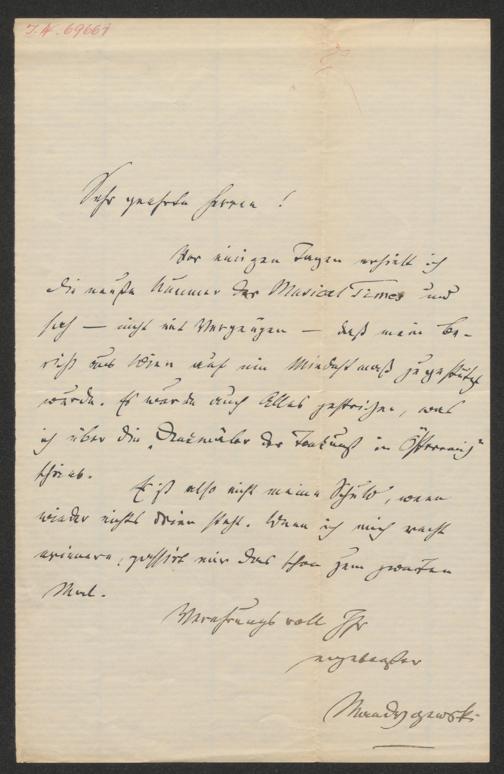 I.N. 69661
Sehr geehrte Herren !
Vor einigen Tagen erhielt ich
die neueste Nummer der Musical Times und
sah — nicht mit Vergnügen — daß mein Be-
richt aus Wien auf ein Mindestmaß zugestutzt
wurde. Es wurde auch Alles gestrichen, was
ich über die „Denkmäler der Tonkunst in Österreich"
schrieb.
Es ist also nicht meine Schuld, wenn
wieder nichts drinn steht. Wenn ich mich recht
erinnere, passirt mir das schon zum zweiten
Mal.
Verehrungsvoll Ihr
ergebenster
Mandyczewski